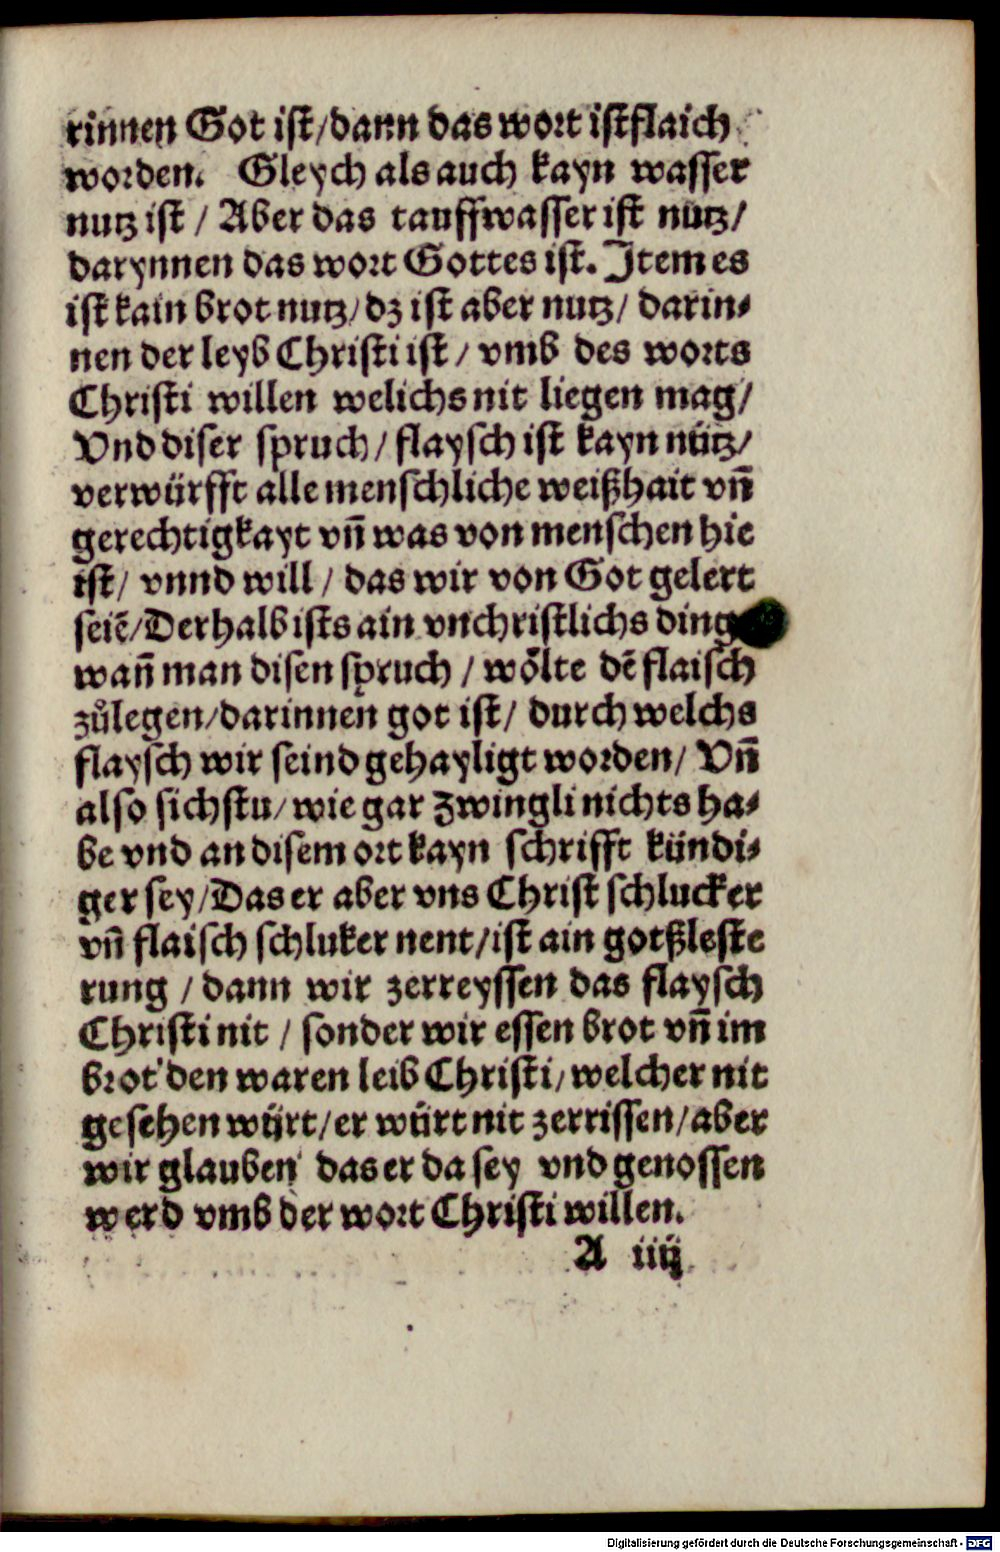 rinnen Got ist/dann das wort istflaich
worden. Gleych als auch kayn wasser
nutz ist / Aber das tauffwasser ist nutz/
darynnen das wort Gottes ist. Item es
ist kain brot nutz/dz ist aber nutz/ darin⸗
nen der leyb Christi ist / vmb des worts
Christi willen welichs nit liegen mag/
Vnd diser spruch/ flaysch ist kayn nütz/
verwürfft alle menschliche weißhait vñ
gerechtigkayt vñ was von menschen hie
ist/ vnnd will / das wir von Got gelert
seiē/Derhalb ists ain vnchristlichs ding
wañ man disen spruch / wőlte dē flaisch
zůlegen/darinnen got ist/ durch welchs
flaysch wir seind gehayligt worden/ Vñ
also sichstu/wie gar Zwingli nichts ha⸗
be vnd an disem ort kayn schrifft kündi⸗
ger sey/Das er aber vns Christ schlucker
vñ flaisch schluker nent/ist ain gotßleste
rung / dann wir zerreyssen das flaysch
Christi nit / sonder wir essen brot vñ im
brot den waren leib Christi/welcher nit
gesehen würt/er würt nit zerrissen/aber
wir glauben das er da sey vnd genossen
werd vmb der wort Christi willen.
A iiij
Digitalisierung gefördert durch die Deutsche Forschungsgemeinschaft - DFG